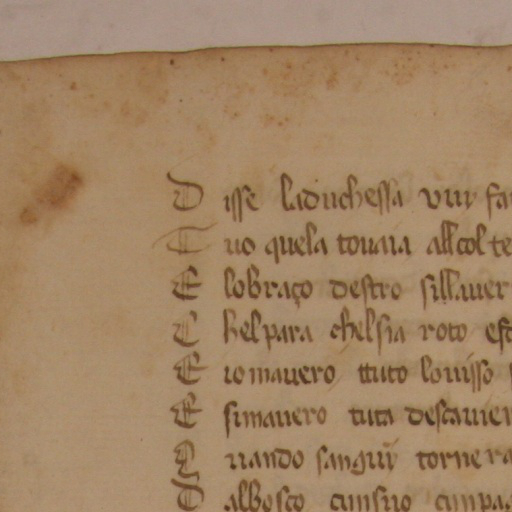 D isse laduchessa vuy fa
T uo quela touaia alcol te
E lobraço destro sillauer
C helpara chelsia roto est
E io mauero ttuto louisso
E simauero tuta descauier
Q uando sanguin tornera
D albosco cunsuo cunpag